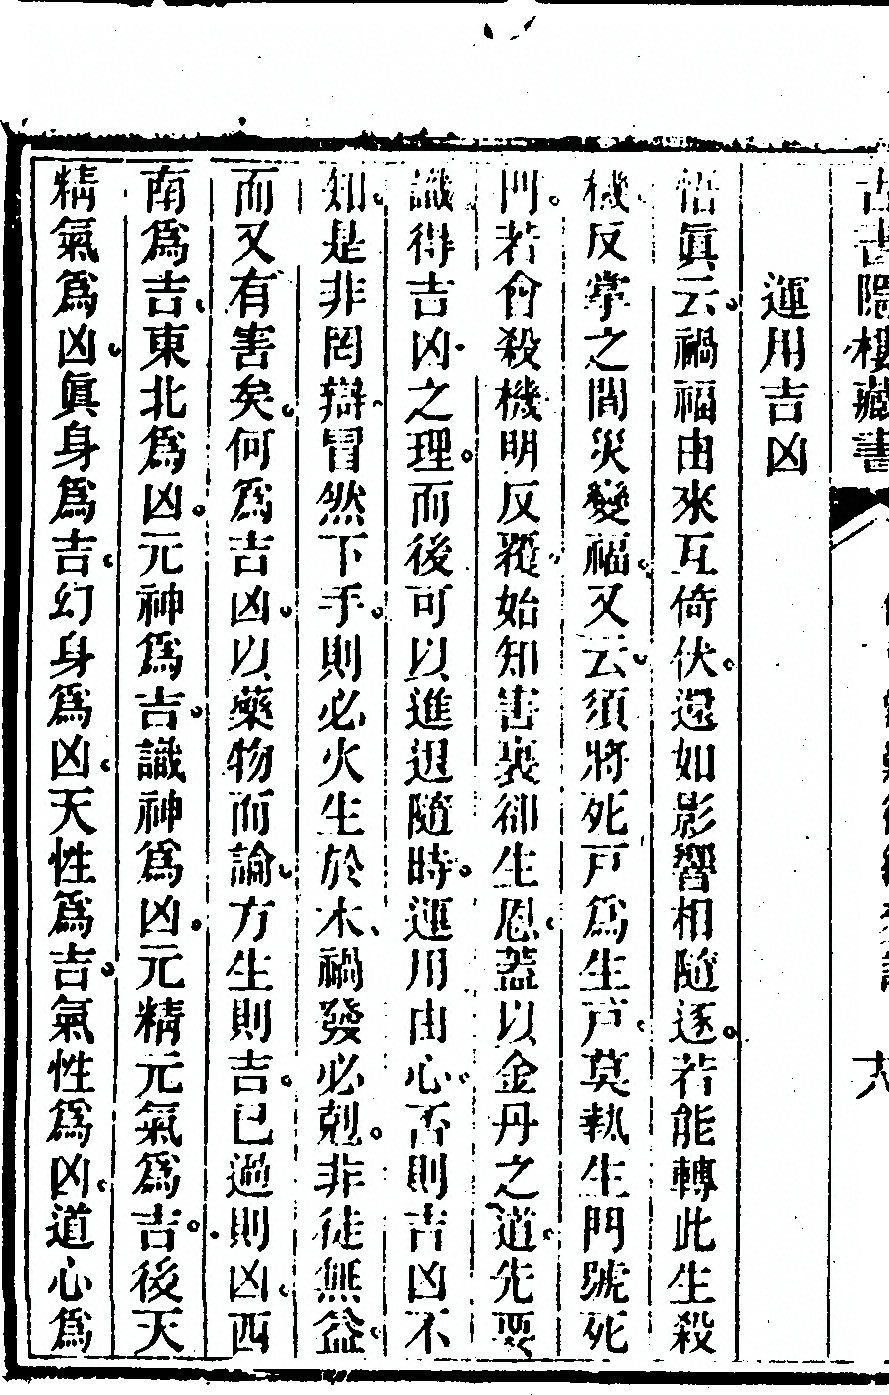 古書隱樓藏書
運用吉凶
悟眞云禍福由來互倚伏還如影響相隨逐若能轉此生殺
機反掌之間災變福又云須將死戸爲生戸莫執生門號死
門若會殺機明反覆始知害裏卻生恩蓋以金丹之道先要
識得吉凶之理而後可以進退隨時運用由心否則吉凶不
知是非罔辯冒然下手則必火生於木禍發必剋非徒無益
而又有害矣何爲吉凶以藥物而論方生則吉已過則凶西
南爲吉東北爲凶元神爲吉識神爲凶元精元氣爲吉後天
精氣爲凶眞身爲吉幻身爲凶天性爲吉氣性爲凶道心爲